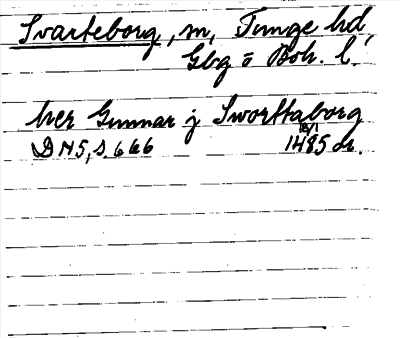 Svarteborg, sn, Tunge hd,
Gbg o Boh. l.
her Gunnar j Sworttaborg
DN5, s. 666 1485 or.